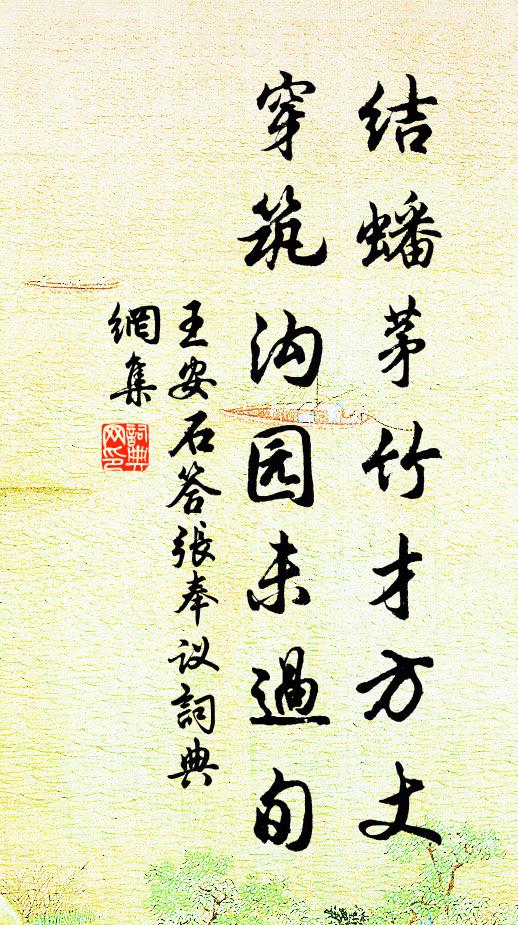 结蟠茅竹才方丈
穿筑沟园未過旬
王安石答張奉议詞典
網集
詞典
网印